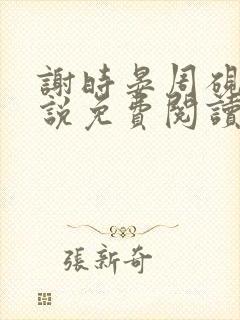 謝時晏周硯
說免費閱讀
張新奇